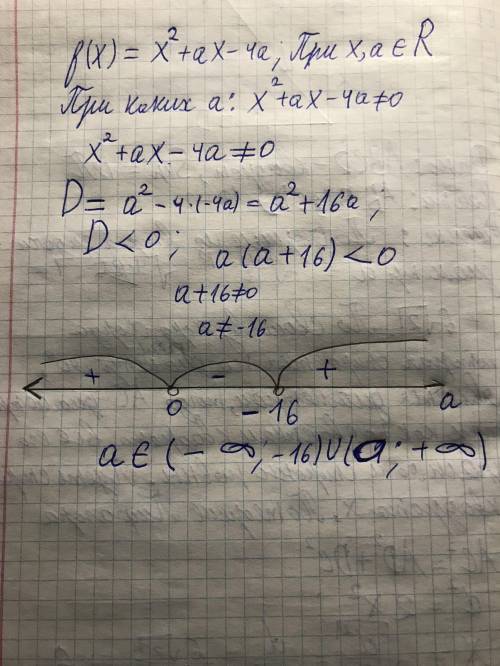 f(x) = x²+ax-4a; При x,a ∈ R
При каких a: x²+ax-4a≠0
x²+ax-4a≠0
D = a²-4·(-4a) = a²+16a;
D<0; a(a+16)<0
a+16≠0
a≠-16
+ - +
0 -16 a
a∈(-∞;-16)∪(0;+∞)